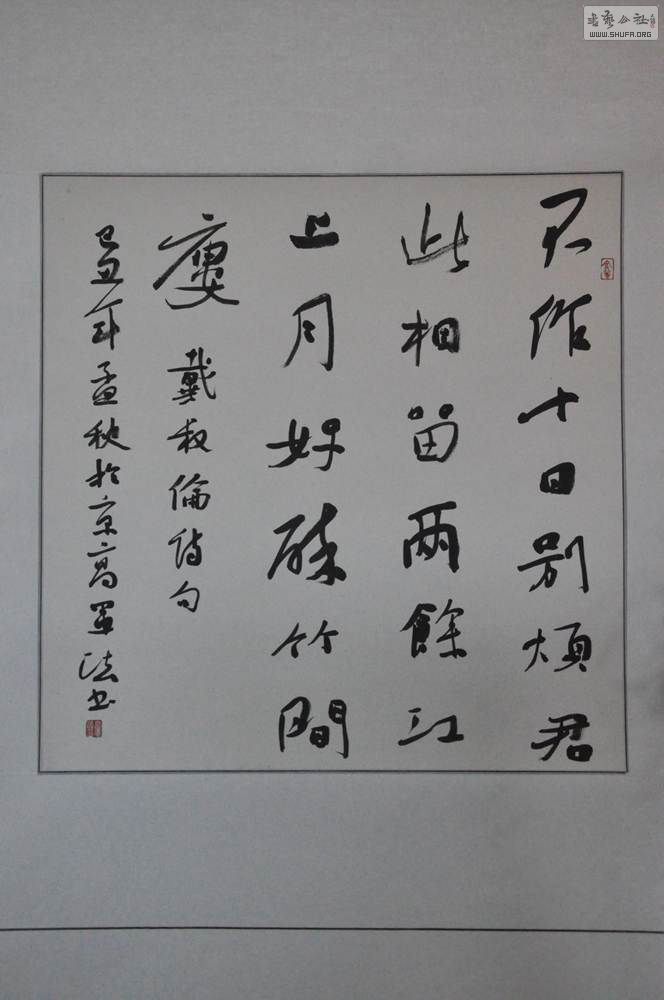 不作十日别煩君
此相留雨餘江
上月好醉竹間
廔 戴叔倫詩句
己丑年孟秋於京高軍法書
书艺公社
WWW.SHUFA.ORG